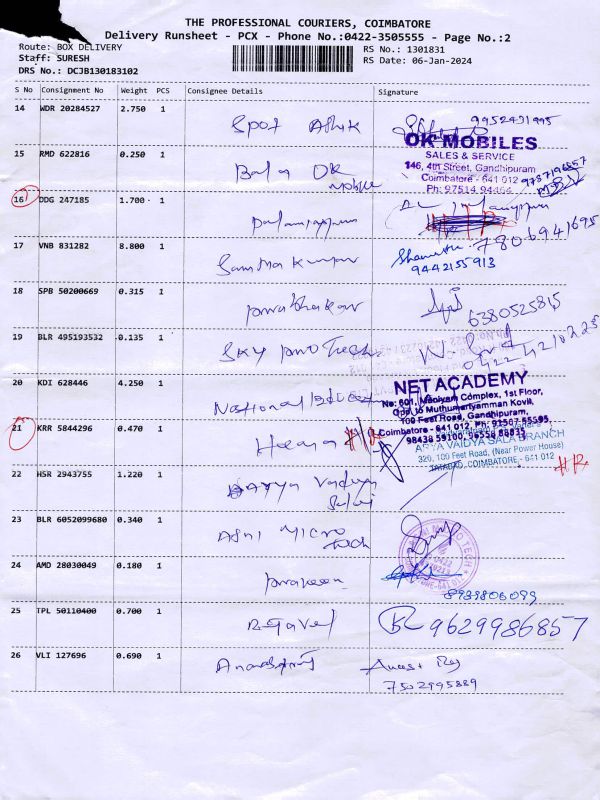 THE PROFESSIONAL COURIERS, COIMBATORE
Delivery Runsheet - PCX - Phone No.:0422-3505555 - Page No.:2
Route: BOX DELIVERY
RS No.: 1301831
Staff: SURESH
RS Date: 06-Jan-2024
DRS No.: DCJB130183102
S No Consignment No Weight PCS Consignee Details Signature
14 WDR 20284527 2.750 1
Spot Ashik
9952431995
OK MOBILES
SALES & SERVICE
146, 4th Street, Gandhipuram
Coimbatore - 641 012
Ph: 97514 94464
15 RMD 622816 0.250 1
Bala OK
Mobile
9787196857
16 DDG 247185 1.700 1
17 VNB 831282 8.800 1
7806941695
9442155913
18 SPB 50200669 0.315 1
Prabhakar
6380525815
19 BLR 495193532 0.135 1
Sky Pro Tech
0422 4210225
20 KDI 628446 4.250 1
National
NET ACADEMY
No: 601, Maniyam Complex, 1st Floor,
Opp to Muthumariyamman Kovil,
100 Feet Road, Gandhipuram,
Coimbatore - 641 012, Ph: 92507 55595,
98438 59100, 96558 88835
21 KRR 5844296 0.470 1
ARYA VAIDYA SALA BRANCH
320, 100 Feet Road, (Near Power House)
TATABAD, COIMBATORE - 641 012
22 HSR 2943755 1.220 1
Arya Vaidya
Salai
23 BLR 6052099680 0.340 1
Micro
Tech
24 AMD 28030049 0.180 1
Praveen
8939806099
25 TPL 50110400 0.700 1
9629986857
26 VLI 127696 0.690 1
7502995889